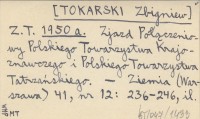 [TOKARSKI Zbigniew]
Z.T. 1950 a. Zjazd Połączenio-
wy Polskiego Towarzystwa Krajo-
znawczego i Polskiego Towarzystwa
Tatrzańskiego. — Ziemia (War-
szawa) 41, nr 12: 236-246, il.
MT